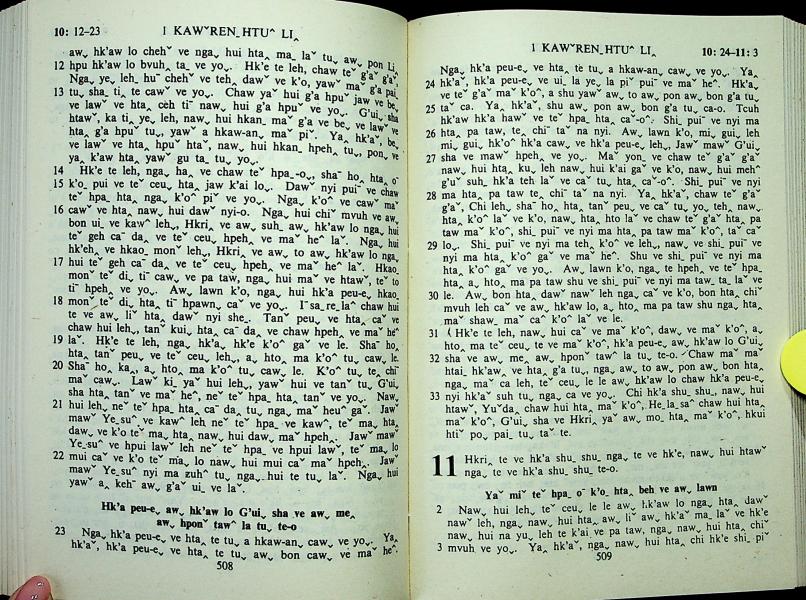 10: 12–23 I KAWˇREN_HTUˆ LI‸
aw‸ hk'aw lo chehˇ ve nga‸ hui hta‸ ma_ laˇ tu‸ aw‸ pon Li‸
12 hpu hk'aw lo bvuh‸ ta‸ ve yo‸. Hk'e te leh, chaw teˇ g'aˇ g'aˇ
Nga‸ ye‸ leh_ huˉ chehˇ ve teh‸ dawˇ ve k'o, yawˇ maˇ g'a pai‸
13 tu‸ sha_ ti‸ te cawˇ ve yo‸. Chaw yaˇ hui g'a hpuˇ jaw ve be‸
ve lawˇ ve hta‸ ceh tiˉ naw‸ hui g'a hpuˇ ve yo‸. G'ui‸ sha
htaw‸ ka ti‸ ye‸ leh, naw‸ hui hkan_ maˇ g'a ve be‸ ve lawˇ ve
hta‸ g'a hpuˇ tu‸ yawˇ a hkaw-an_ maˇ piˇ. Ya‸ hk'aˇ, be‸
ve lawˇ ve hta‸ hpuˇ htaˇ, naw‸ hui hkan_ hpeh‸ tu‸ pon‸ ve
ya‸ k'aw hta‸ yawˇ gu ta_ tu‸ yo‸.
14 Hk'e te leh, nga‸ ha‸ ve chaw teˇ hpa_-o‸, shaˉ ho‸ hta‸ oˉ
15 k'o_ pui ve teˇ ceu‸ hta‸ jaw k'ai lo‸. Dawˇ nyi puiˉ ve chaw
teˇ hpa_ hta‸ nga‸ k'oˆ piˇ ve yo‸. Nga‸ k'oˆ ve cawˇ maˇ
16 cawˇ ve hta‸ naw‸ hui dawˇ nyi-o. Nga‸ hui chiˇ mvuh ve aw‸
bon ui_ ve kawˆ leh‸, Hkri‸ ve aw‸ suh_ aw‸ hk'aw lo nga‸ hui
teˇ geh caˉ da‸ ve teˇ ceu‸ hpeh‸ ve maˇ heˆ laˇ. Nga‸ hui
hk'eh‸ ve hkao_ monˇ leh‸, Hkri‸ ve aw‸ to aw‸ hk'aw lo nga‸
17 hui teˇ geh caˉ da‸ ve teˇ ceu‸ hpeh‸ ve maˇ heˆ laˇ. Hkao_
monˇ teˇ di‸ tiˉ caw‸ ve pa taw‸ nga‸ hui maˇ ve htawˇ, teˇ to
tiˉ hpeh‸ ve yo‸. Aw‸ lawn k'o, nga‸ hui hk'a peu-e‸ hkao_
18 monˇ teˇ di‸ hta‸ tiˉ hpawn‸ caˇ ve yo‸. Iˉ sa_re_laˆ chaw hui
te ve aw‸ liˇ hta‸ dawˇ nyi she_. Tanˇ peu‸ ve hta‸ caˇ ve
chaw hui leh‸, tanˇ kui hta‸ caˉ da‸ ve chaw hpeh‸ ve maˇ heˆ
19 laˇ. Hk'e te leh, nga‸ hk'a‸ hk'e k'oˆ gaˇ ve le. Shaˉ ho‸
hta‸ tanˇ peu‸ ve teˇ ceu‸ leh‸, a‸ hto‸ ma k'oˆ tu‸ caw‸ le.
20 Shaˉ ho‸ ka‸ a‸ hto‸ ma k'oˆ tu‸ caw‸ le. K'oˇ tu‸ te‸ chiˉ
maˇ caw‸. Lawˇ ki_ yaˇ hui leh‸, yawˇ hui ve tanˇ tu‸ G'ui‸
sha hta‸ tanˇ ve maˇ heˆ, neˇ teˇ hpa_ hta‸ tanˇ ve yo‸. Naw‸
21 hui leh‸ neˇ teˇ hpa_ hta‸ caˉ da‸ tu‸ nga‸ maˇ heuˆ gaˇ. Jawˇ
mawˇ Ye_suˆ ve kawˆ leh neˇ teˇ hpa_ ve kawˆ, teˇ ma‸ hta‸
daw‸ ve k'o teˇ ma‸ hta‸ naw‸ hui daw‸ maˇ hpeh‸. Jawˇ mawˇ
Ye_suˆ ve hpui lawˇ leh neˇ teˇ hpa_ ve hpui lawˇ, teˇ ma‸ lo
22 mui caˇ ve k'o teˇ ma‸ lo naw‸ hui mui caˇ maˇ hpeh‸. Jawˇ
mawˇ Ye_suˆ nyi ma zuhˆ tu‸ nga‸ hui te tu‸ laˇ. Nga‸ hui
yawˇ a‸ kehˉ aw‸ g'aˇ ui‸ ve laˇ.
Hk'a peu-e‸ aw‸ hk'aw lo G'ui‸ sha ve aw‸ me‸
aw‸ hponˇ tawˆ la tu‸ te-o
23 Nga‸ hk'a peu-e‸ ve hta‸ te tu‸ a hkaw-an_ caw‸ ve yo‸. Ya‸
hk'aˇ, hk'a peu-e‸ ve hta‸ te tu‸ aw‸ bon caw‸ ve maˇ heˆ.
508
I KAWˇREN_HTUˆ LI‸ 10: 24–11: 3
Nga‸ hk'a peu-e‸ ve hta‸ te tu‸ a hkaw-an_ caw‸ ve yo‸. Ya‸
24 hk'aˇ, hk'a peu-e‸ ve ui_ la ye‸ la piˇ puiˉ ve maˇ heˆ. Hk'a‸
ve teˇ g'aˇ maˇ k'oˆ, a shu yawˇ aw‸ to aw‸ pon aw‸ bon g'a tu‸
25 taˇ ca. Ya‸ hk'aˇ, shu aw‸ pon aw‸ bon g'a tu‸ ca-o. Tcuh
hk'aw hk'a hawˇ ve teˇ hpa_ hta‸ caˇ-oˆ. Shi_ puiˉ ve nyi ma
26 hta‸ pa taw‸ te‸ chiˉ taˇ na nyi. Aw‸ lawn k'o, mi‸ gui‸ leh
mi‸ gui‸ hk'oˆ hk'a caw‸ ve hk'a peu-e‸ leh‸, Jawˇ mawˇ G'ui‸
27 sha ve mawˇ hpeh‸ ve yo‸. Maˇ yon‸ ve chaw teˇ g'aˇ g'aˇ
naw‸ hui hta‸ ku‸ leh naw‸ hui k'ai gaˇ ve k'o, naw‸ hui mehˆ
g'uˇ suh_ hk'a teh laˇ ve caˇ tu‸ hta‸ caˇ-oˆ. Shi_ puiˉ ve nyi
28 ma hta‸ pa taw‸ te‸ chiˉ taˇ na nyi. Ya‸ hk'aˇ, chaw teˇ g'aˇ
g'aˇ, Chi leh‸ shaˉ ho‸ hta‸ tanˇ peu‸ ve caˇ tu‸ yo‸ teh‸ naw‸
hta‸ k'oˆ laˇ ve k'o, naw‸ hta‸ hto laˇ ve chaw teˇ g'aˇ hta‸ pa
taw‸ maˇ k'oˆ, shi_ puiˉ ve nyi ma hta‸ pa taw‸ maˇ k'oˆ, taˇ ca
29 lo‸. Shi_ puiˉ ve nyi ma teh‸ k'oˆ ve leh‸, naw‸ ve shi_ puiˉ ve
nyi ma hta‸ k'oˆ gaˇ ve maˇ heˆ. Shu ve shi_ puiˉ ve nyi ma
hta‸ k'oˆ gaˇ ve yo‸. Aw‸ lawn k'o, nga‸ te hpeh‸ ve teˇ hpa_
hta‸ a‸ hto‸ ma pa taw‸ shu ve shi_ puiˉ ve nyi ma ta‸ ta_ laˇ ve
30 le. Aw‸ bon hta‸ dawˇ nawˇ leh nga‸ caˇ ve k'o, bon hta‸ chiˇ
mvuh leh caˇ ve aw‸ hk'aw lo, a‸ hto‸ ma pa taw‸ shu nga‸ hta‸
maˇ shaw_ ma_ caˆ k'oˆ laˇ ve le.
31 Hk'e te leh, naw‸ hui caˇ ve maˇ k'oˆ, daw‸ ve maˇ k'oˆ, a‸
hto‸ ma te ceu‸ te ve maˇ k'oˆ, hk'a peu-e‸ aw‸ hk'aw lo G'ui‸
32 sha ve aw‸ me‸ aw‸ hponˇ tawˆ la tu‸ te-o. Chaw maˇ ma‸
htai‸ hk'aw‸ ve hta‸ g'a tu‸, nga‸ aw‸ to aw‸ pon aw‸ bon hta‸
nga‸ maˇ ca leh, teˇ ceu‸ le le aw‸ hk'aw lo chaw hk'a peu-e‸
33 nyi hk'aˇ suh tu‸ nga‸ ca ve yo‸. Chi hk'a shu_ shu‸ naw‸ hui
htawˇ, Yuˇda_ chaw hui hta‸ maˇ k'oˆ, He_la_saˆ chaw hui hta‸
maˇ k'oˆ, G'ui‸ sha ve Hkri‸ yaˇ aw‸ mo‸ hta‸ maˇ k'oˆ, hkui
htiˇ po‸ pai_ tu‸ taˇ te.
11 Hkri‸ te ve hk'a shu_ shu_ nga‸ te ve hk'e, naw‸ hui htawˇ
nga‸ te ve hk'a shu_ shu_ te-o.
Yaˇ miˇ teˇ hpa_ oˉ k'o_ hta‸ beh ve aw‸ lawn
2 Naw‸ hui leh‸ teˇ ceu‸ le le aw‸ hk'aw lo nga‸ hta‸ dawˇ
nawˇ leh, nga‸ naw‸ hui hta‸ aw‸ liˇ aw‸ hk'aˇ ma_ laˇ ve hk'e
naw‸ hui na yu‸ leh te k'ai ve pa taw‸ nga‸ naw‸ hui hta‸ chiˇ
3 mvuh ve yo‸. Ya‸ hk'aˇ, nga‸ naw‸ hui hta‸ chi hk'e shi_ piˇ
509